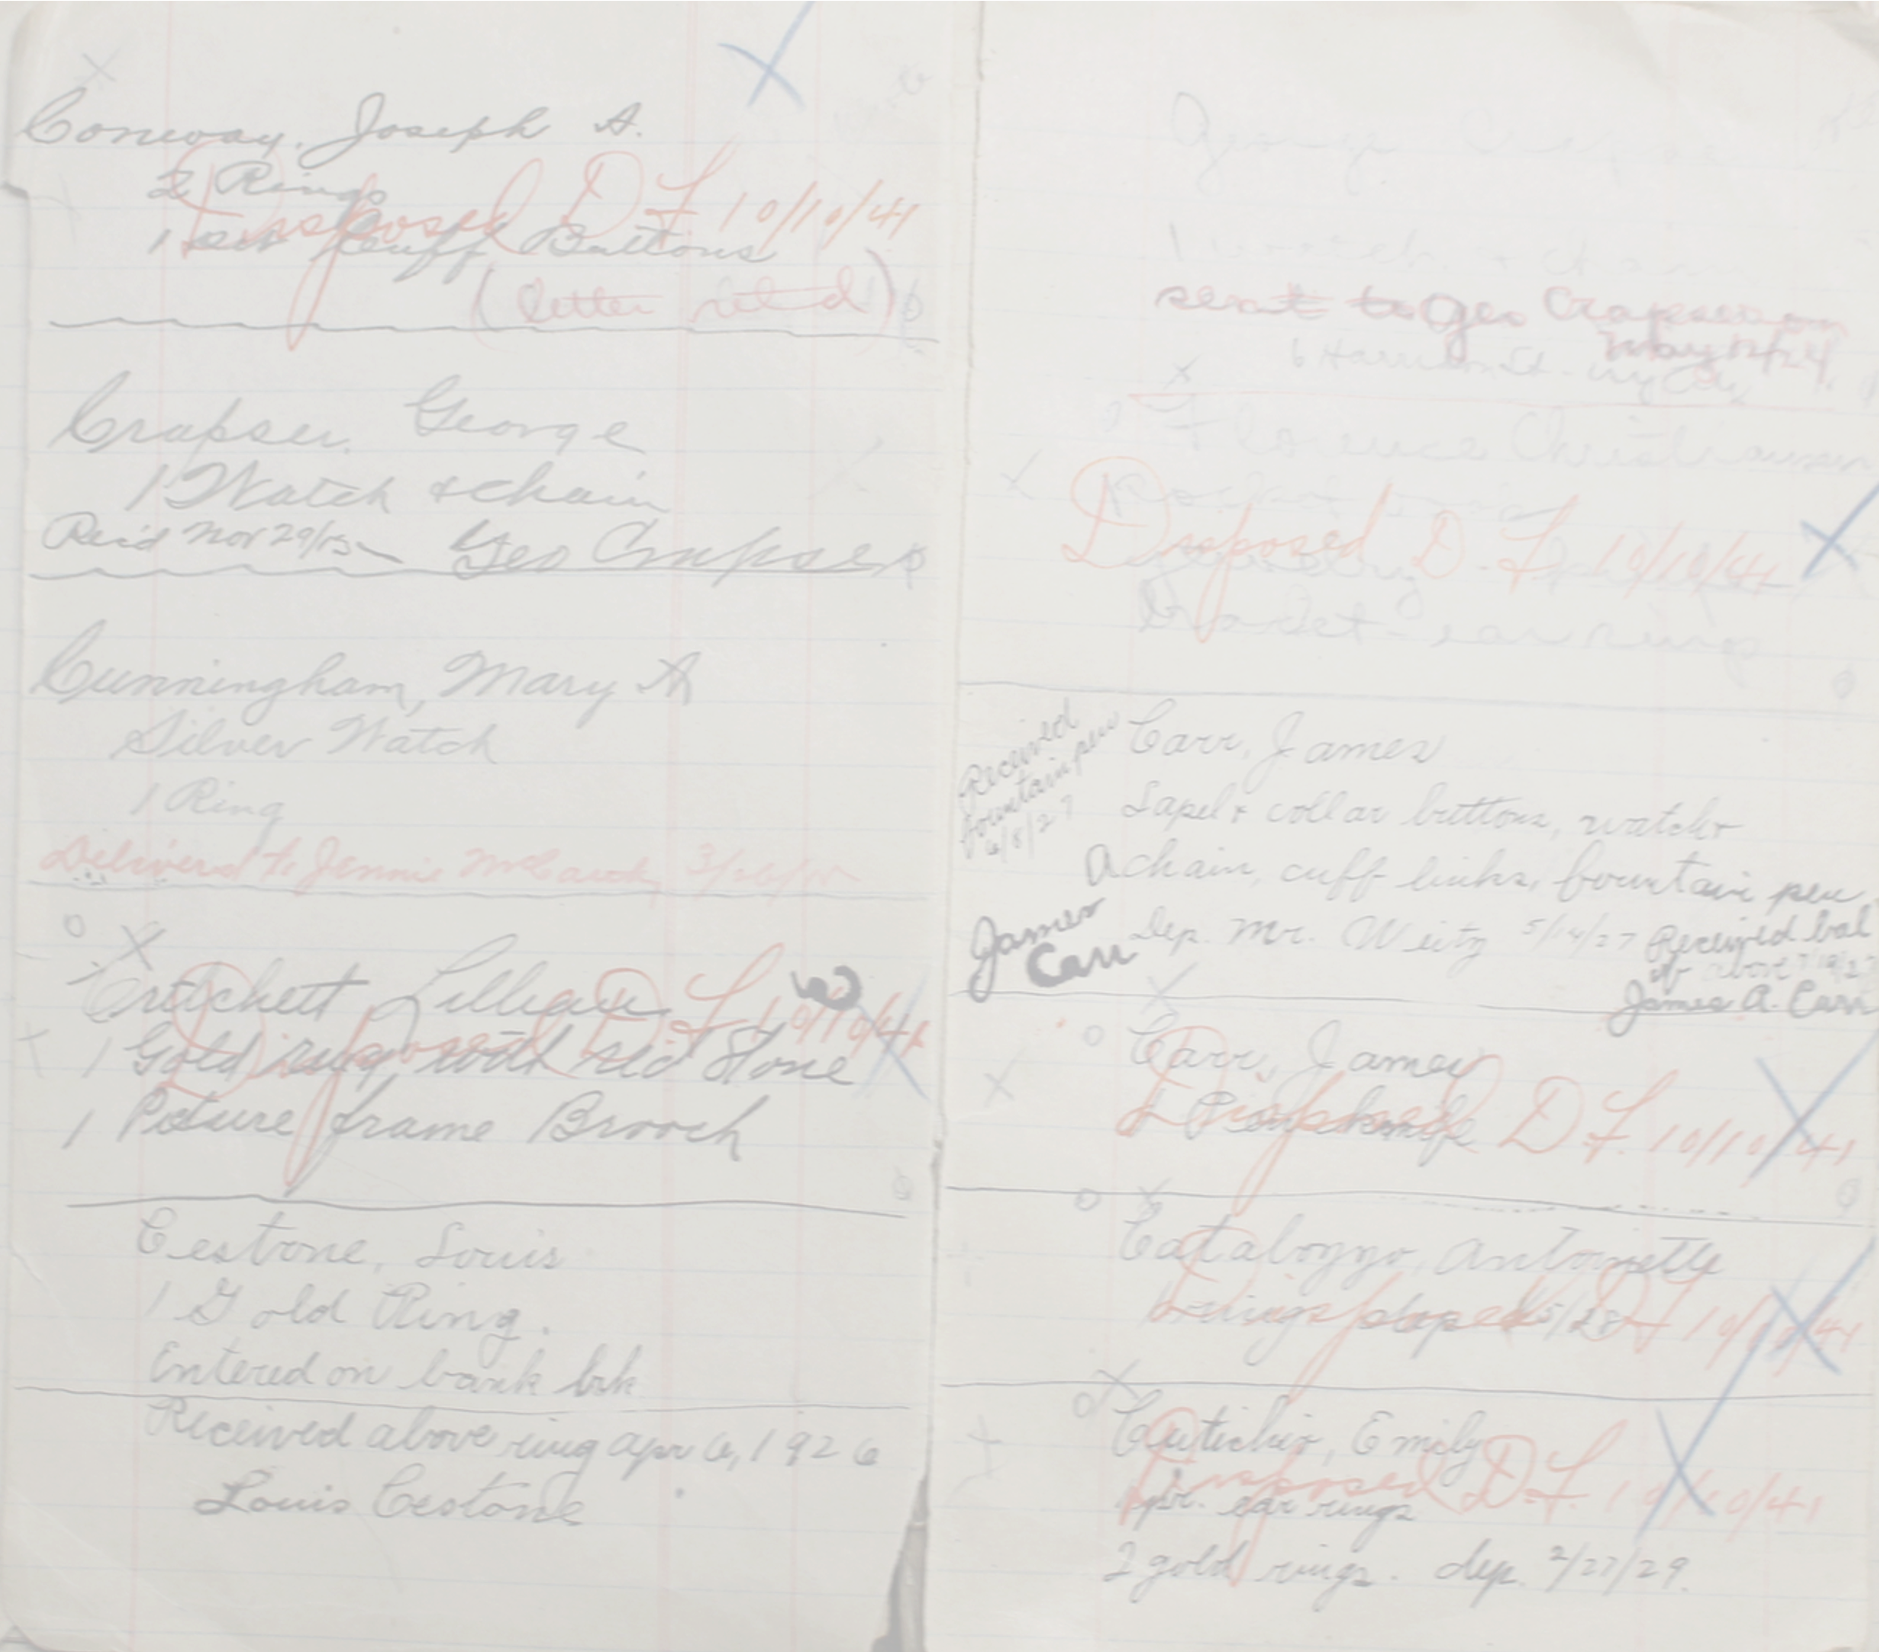 Conway, Joseph A.
2 Rings
Disposed D F 10/10/41
1 set Cuff Buttons
(letter ret'd)
Crapser, George
1 Watch & chain
Rec'd Nov 29/15 Geo Crapser
Cunningham, Mary A
Silver Watch
1 Ring
Delivered to Jennie
Crutchett Lillian
Disposed D. F 10/10/41
1 Gold ring with red stone
1 Picture frame Brooch
Cestone, Louis
1 Gold Ring.
Entered on bank bk
Received above ring apr 6, 1926
Louis Cestone
George
1 watch & chain
sent to Geo Crapser on
May 12/24
6 Harrison St.
Florence Christiansen
Disposed D. F 10/10/41
ear rings
Received
fountain pen
6/8/27
Carr, James
Lapel & collar buttons, watch &
chain, cuff links, fountain pen,
Dep. Mr. Weitz 5/14/27
James
Carr
Received bal
of above
James A. Carr
Carr, James
Disposed D F. 10/10/41
1 Penknife
Cataboggo, Antoinette
Disposed D F 10/10/41
Cutichio, Emily
Disposed D. F. 10/10/41
1 pr. ear rings
2 gold rings. dep. 2/27/29.